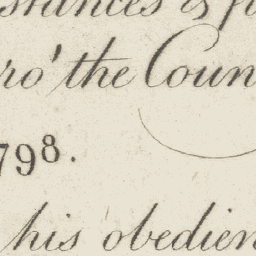 stances & f
ro' the Coun
798.
his obedien